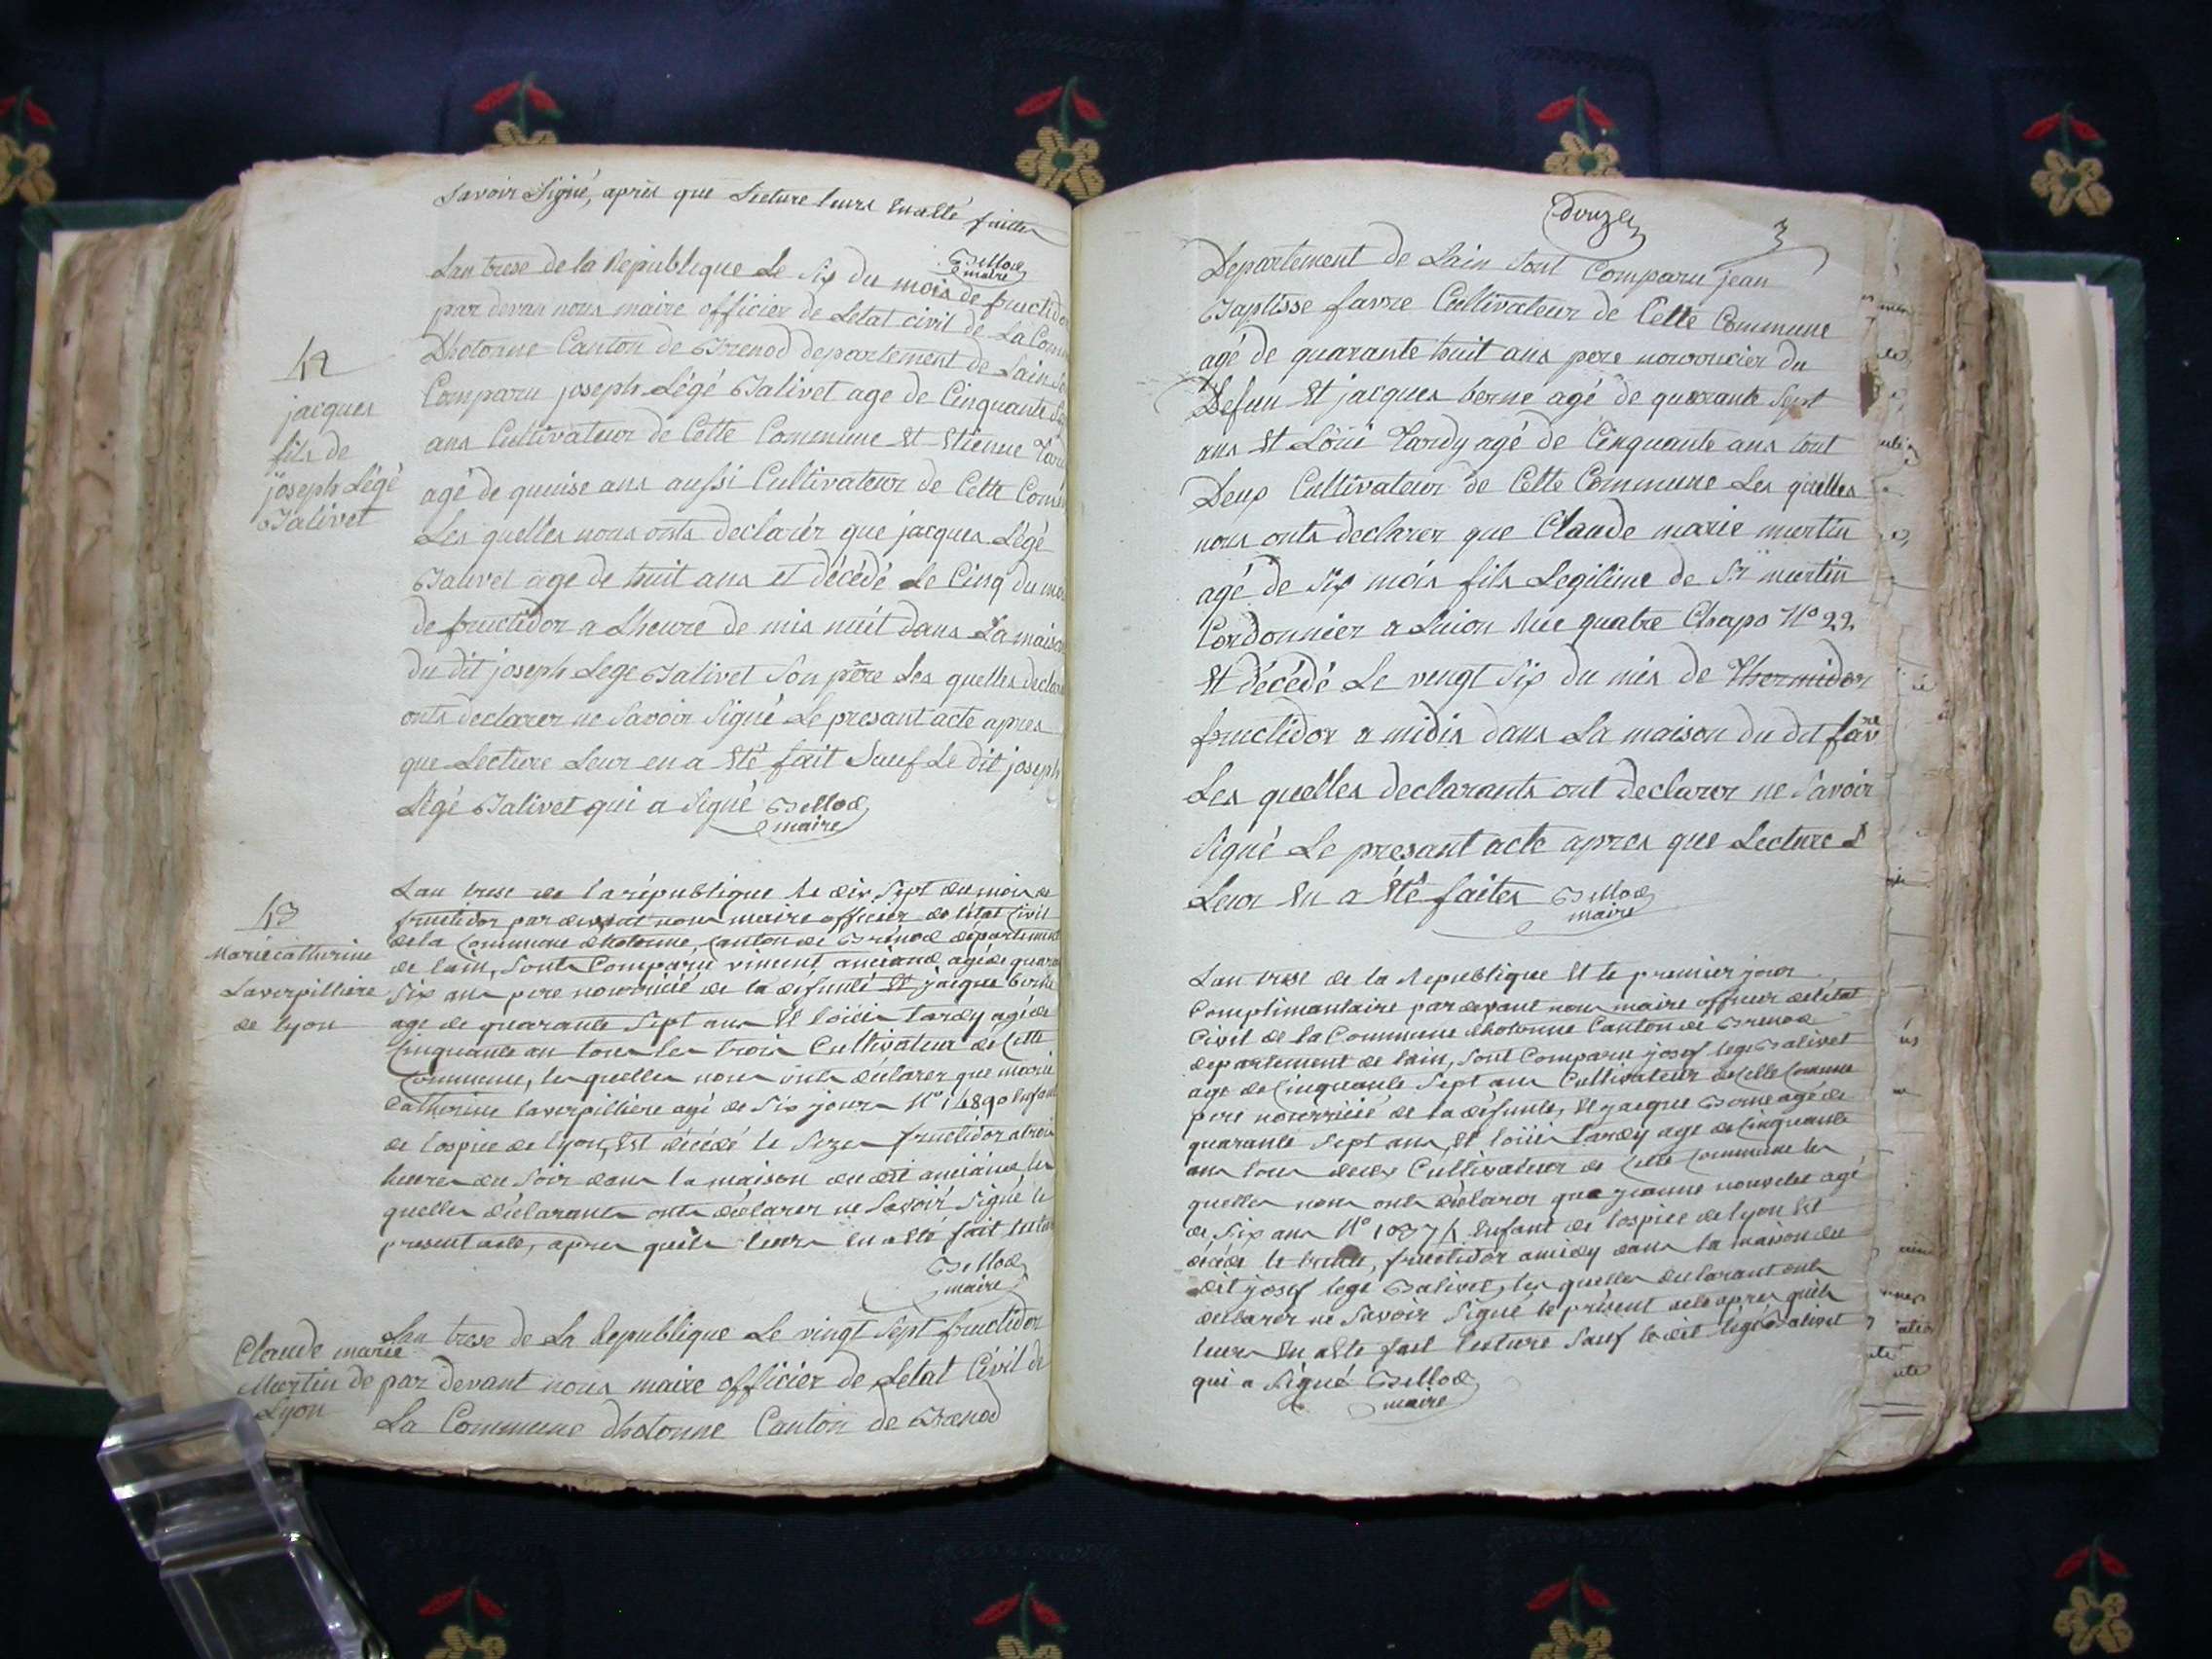 Savoir Signé, après que Lecture leurs En a Eté faitte
Bellod
maire
Lan trese de la Republique Le Six du mois de fructidor
par devan nous maire officier de Letat civil de La Com
Dhotonne Canton de Brenod departement de Lain
Comparu joseph Légé Jalivet age de Cinquante
ans Cultivateur de Cette Commune Et Etienne
agé de quinse ans aussi Cultivateur de Cette Com
Les quelles nous onts declarér que jacques Légé
Jalivet age de huit ans et décédé Le Cinq du
de fructidor a Lheure de mis nuit dans La maison
du dit joseph Lege Jalivet Son père Les quelles
onts declarer ne Savoir Signé Le presant acte apres
que Lecture Leur en a Eté fait Sauf Le dit joseph
Légé Jalivet qui a Signé Bellod
maire
42
jacques
fils de
joseph Légé
Jalivet
Lan trese de la république le dix Sept du mois de
fructidor par devant nous maire officier de létat Civil
de la Commune dhotonne, Canton de Brénod département
de lain, Sonts Comparu vincent anciand agé de
Six ans pere nourricié de la défunte Et jacque berne
age de quarante Sept ans Et loüis tardy agé de
Cinquante an tous les trois Cultivateur de Cette
Commune, les quelles nous onts déclarer que marie
Catherine laverpilliere agé de Six jours N° 1489
de lospice de lyon, Est décédé le Seze fructidor a trois
heures du Soir dans la maison du dit anciand les
quelles déclarants onts déclarer ne Savoir Signé le
présent acte, apres quels leurs En a Eté fait
Bellod
maire
43
Marie catherine
Laverpilliere
de lyon
Lan trese de La Republique Le vingt Sept fructidor
par devant nous maire officier de Letat Civil de
La Commune dhotonne Canton de Brenod
Claude marie
Murtin de
Lyon
douze
Departement de Lain Sont Comparu jean
Baptisse favre Cultivateur de Cette Commune
agé de quarante huit ans pere nourricier du
Defun Et jacques berne agé de quarante Sept
ans Et Loüi Tardy agé de Cinquante ans tout
Deux Cultivateur de Cette Commune Les quelles
nous onts declarer que Claude marie murtin
agé de Six mois fils Legitime de Sr murtin
Cordonnier a Luion Rue quatre Chaps N° 22
Et décédé Le vengt Six du mis de Thermidor
fructidor a midis dans La maison du dit favre
Les quelles declarants ont declarer ne Savoir
Signé Le presant acte apres que Lecture
Leur En a Eté faites Bellod
maire
Lan trese de la Republique Et le premier jour
Complimantaire par devant nous maire officier de létat
Civil de la Commune dhotonne Canton de Brenod
departement de lain, Sont Comparu josef lege Jalivet
age de Cinquante Sept ans Cultivateur de Cette Comune
pere nourricié de la défunte, Et jacque Borne agé de
quarante Sept ans Et loüis tardy age de Cinquante
ans tous deux Cultivateur de Cette Commune les
quelles nous onts déclarer que jeanne nouvelet agé
de Six ans N° 10374 Enfant de lospice de lyon Est
décédé le trente, fructidor a midy dans la maison du
dit josef lege Jalivet, les quelles declarant onts
declarer ne Savoir Signé le présent acte apres quels
leurs En a Eté fait lecture Sauf le dit légé Jalivet
qui a Signé Bellod
maire